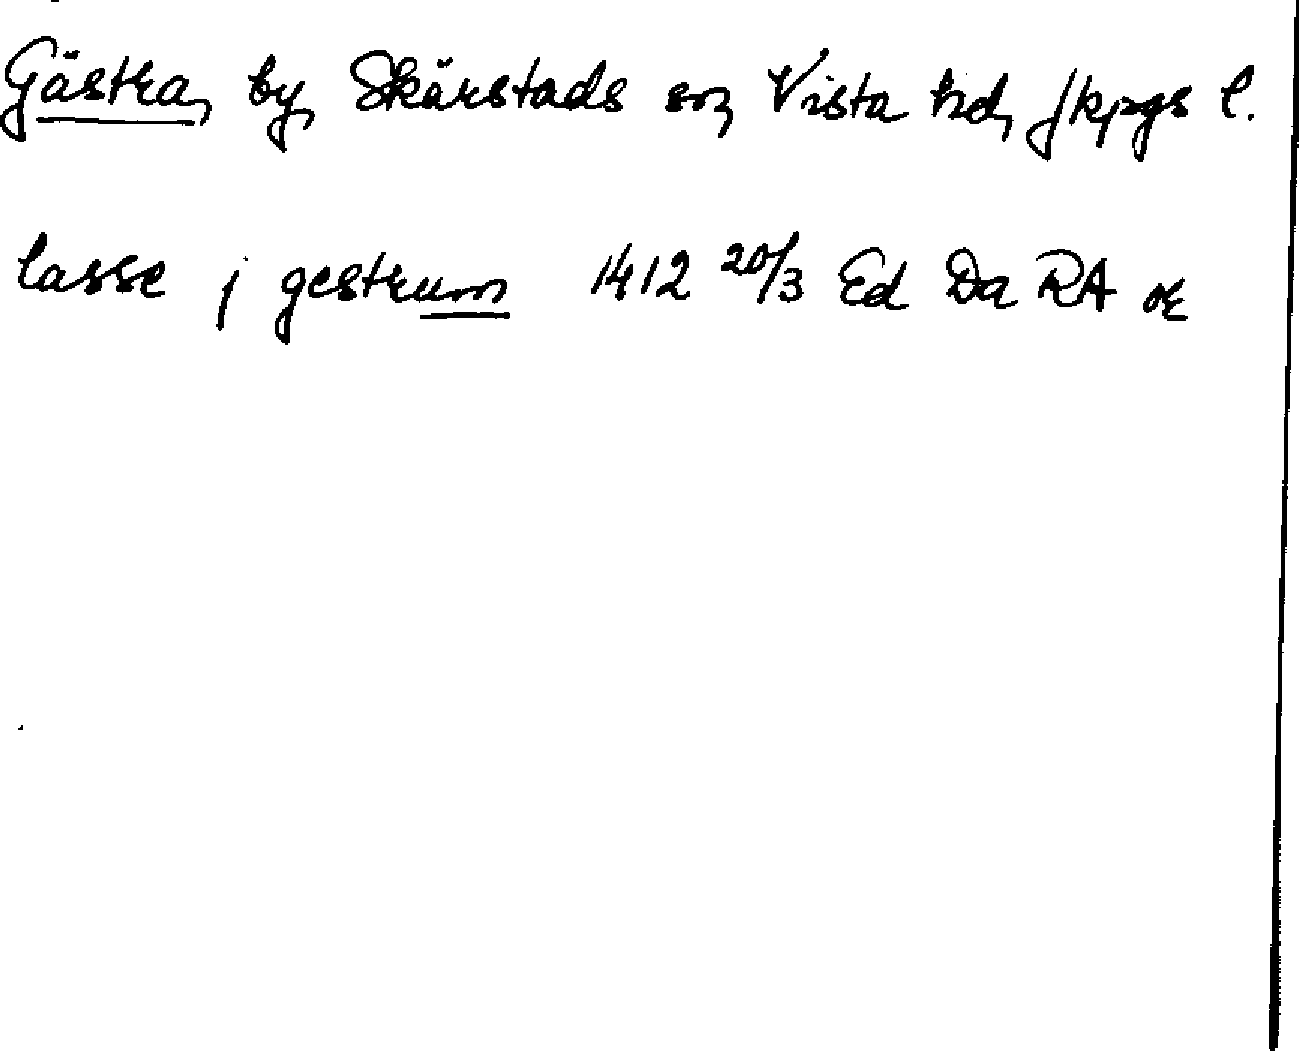 Gästra, by, Skärstads sn, Vista hd, Jkpgs l.
lasse j gestrum 1412 20/3 Ed Da RA or